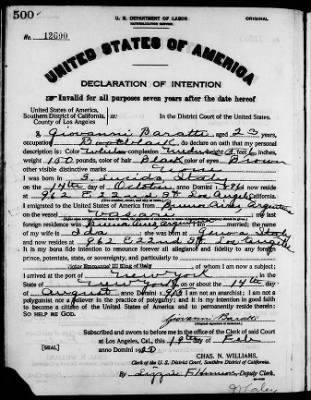 500
U. S. DEPARTMENT OF LABOR
NATURALIZATION SERVICE
ORIGINAL
No. 12690
UNITED STATES OF AMERICA
DECLARATION OF INTENTION
Invalid for all purposes seven years after the date hereof
United States of America,
Southern District of California,
County of Los Angeles
ss:
In the District Court of the United States.
I, Giovanni Baratti, aged 23 years,
occupation Bootblack, do declare on oath that my personal
description is: Color White, complexion, height 5 feet inches,
weight 150 pounds, color of hair Black, color of eyes Brown
other visible distinctive marks None
I was born in S. Lucida Italy
on the 14th day of October, anno Domini 1896; now reside
at 962 E 22nd St Los Angeles, California.
I emigrated to the United States of America from Buenos Aires Argentine
on the vessel Vasari; my last
foreign residence was Buenos Aires Argentine; I am married; the name of my
wife is Ida; she was born at Italy
and now resides at 962 E 22nd St Los Angeles
It is my bona fide intention to renounce forever all allegiance and fidelity to any foreign
prince, potentate, state, or sovereignty, and particularly to
Victor Emmanuel III King of Italy, of whom I am now a subject;
I arrived at the port of New York, in the
State of New York, on or about the 14th day
of August, anno Domini; I am not an anarchist; I am not a
polygamist nor a believer in the practice of polygamy; and it is my intention in good faith
to become a citizen of the United States of America and to permanently reside therein:
SO HELP ME GOD.
Giovanni Baratti
Subscribed and sworn to before me in the office of the Clerk of said Court
at Los Angeles, Cal., this 19th day of Feb
[SEAL]
anno Domini 1920
CHAS. N. WILLIAMS,
Clerk of the U. S. District Court, Southern District of California.
By, Deputy Clerk.